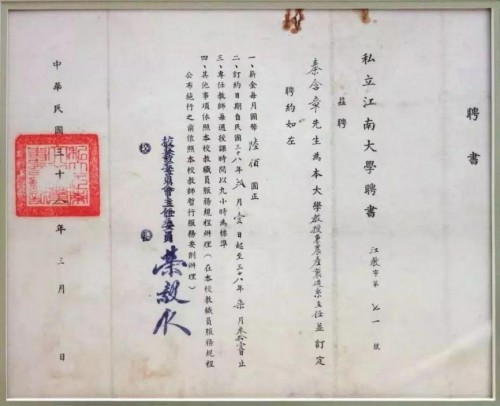 聘書
私立江南大學聘書
江教字第七一號
茲聘
秦含章先生為本大學教授兼農產製造系主任並訂定
聘約如左
一、薪金每月國幣陸佰圓正
二、訂約日期自民國三十八年 月壹日起至三十八年柒月叁拾壹日止
三、專任教師每週授課時間以九小時為標準
四、其他事項依照本校教職員服務規程辦理（在本校教職員服務規程
公布施行之前依照本校教師暫行服務要則辦理）
校務委員會主任委員 榮毅仁
中華民國三十八年三月 日